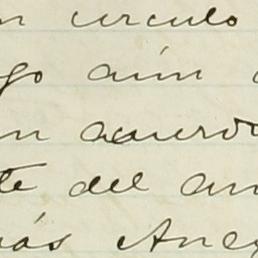 n circulo
go aún
n acuerdo
te del an
ás Ane